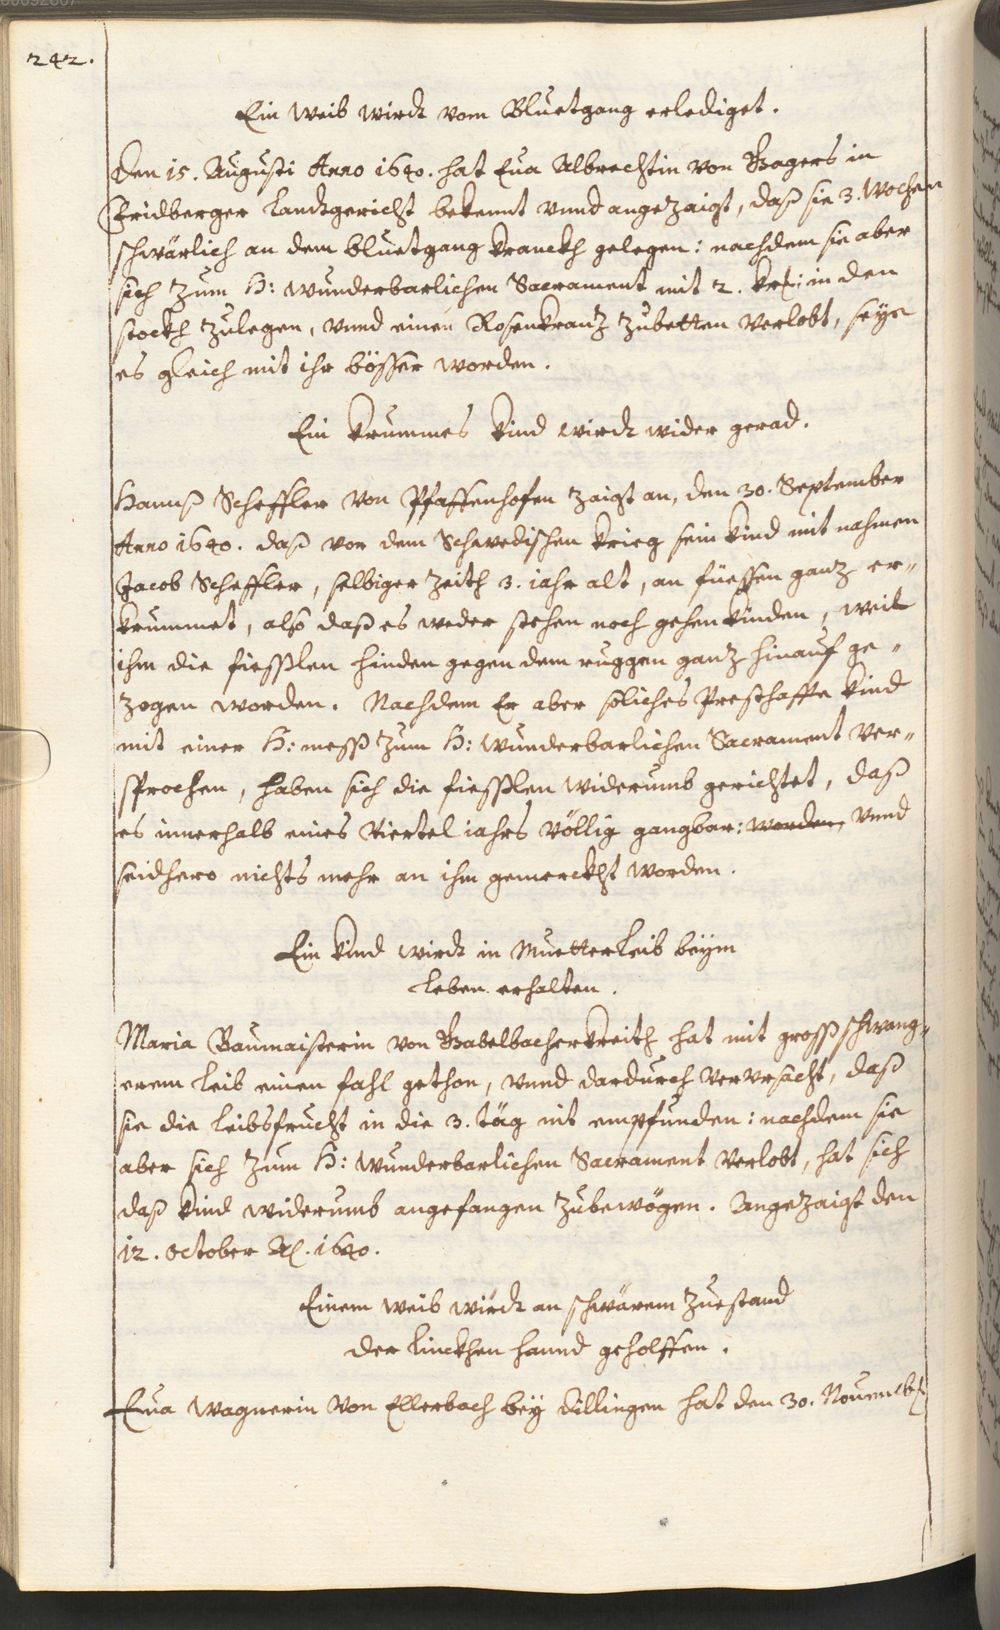 242.
Ein Weib wirdt vom Bluetgang erlediget.
Den 15. Augusti Anno 1640. hat Eua Albrechtin von Bagers in
Fridberger Landtgericht bekennt vnnd angezaigt, daß sie 3. Wochen
schwärlich an dem bluetgang kranckh gelegen: nachdem sie aber
sich zum H: wunderbarlichen Sacrament mit 2. kr: in den
stockh zulegen, vnnd einen Rosenkrantz zubetten verlobt, seye
es gleich mit ihr bösser worden.
Ein krummes kind wirdt wider gerad.
Hannß Scheffler von Pfaffenhofen zaigt an, den 30. September
Anno 1640. daß vor dem Schwedischen krieg sein kind mit nahmen
Jacob Scheffler, selbiger zeith 3. iahr alt, an füessen gantz er„
krummet, also daß es weder stehen noch gehen künden, weil
ihm die fiesslen hinden gegen dem ruggen gantz hinauf ge„
zogen worden. Nachdem Er aber solliches Presthaffte kind
mit einer H: mess zum H: wunderbarlichen Sacrament ver„
sprochen, haben sich die fiesslen widerumb gerichtet, daß
es innerhalb eines viertel iahrs völlig gangbar: worden, vnnd
seidhero nichts mehr an ihm gemerckht worden.
Ein kind wirdt in Muetterleib beym
Leben erhalten.
Maria Baumaisterin von Babelbacherkreith hat mit gross schwang„
erem leib einen fahl gethon, vnnd dardurch vervrsacht, daß
sie die leibsfrucht in die 3. täg nit empfunden: nachdem sie
aber sich zum H: Wunderbarlichen Sacrament verlobt, hat sich
daß kind widerumb angefangen zubewögen. Angezaigt den
12. October Aõ. 1640.
Einem weib wirdt an schwärem zuestand
der linckhen hannd geholffen.
Eua Wagnerin von Ellerbach bey Dillingen hat den 30. Nouemb: